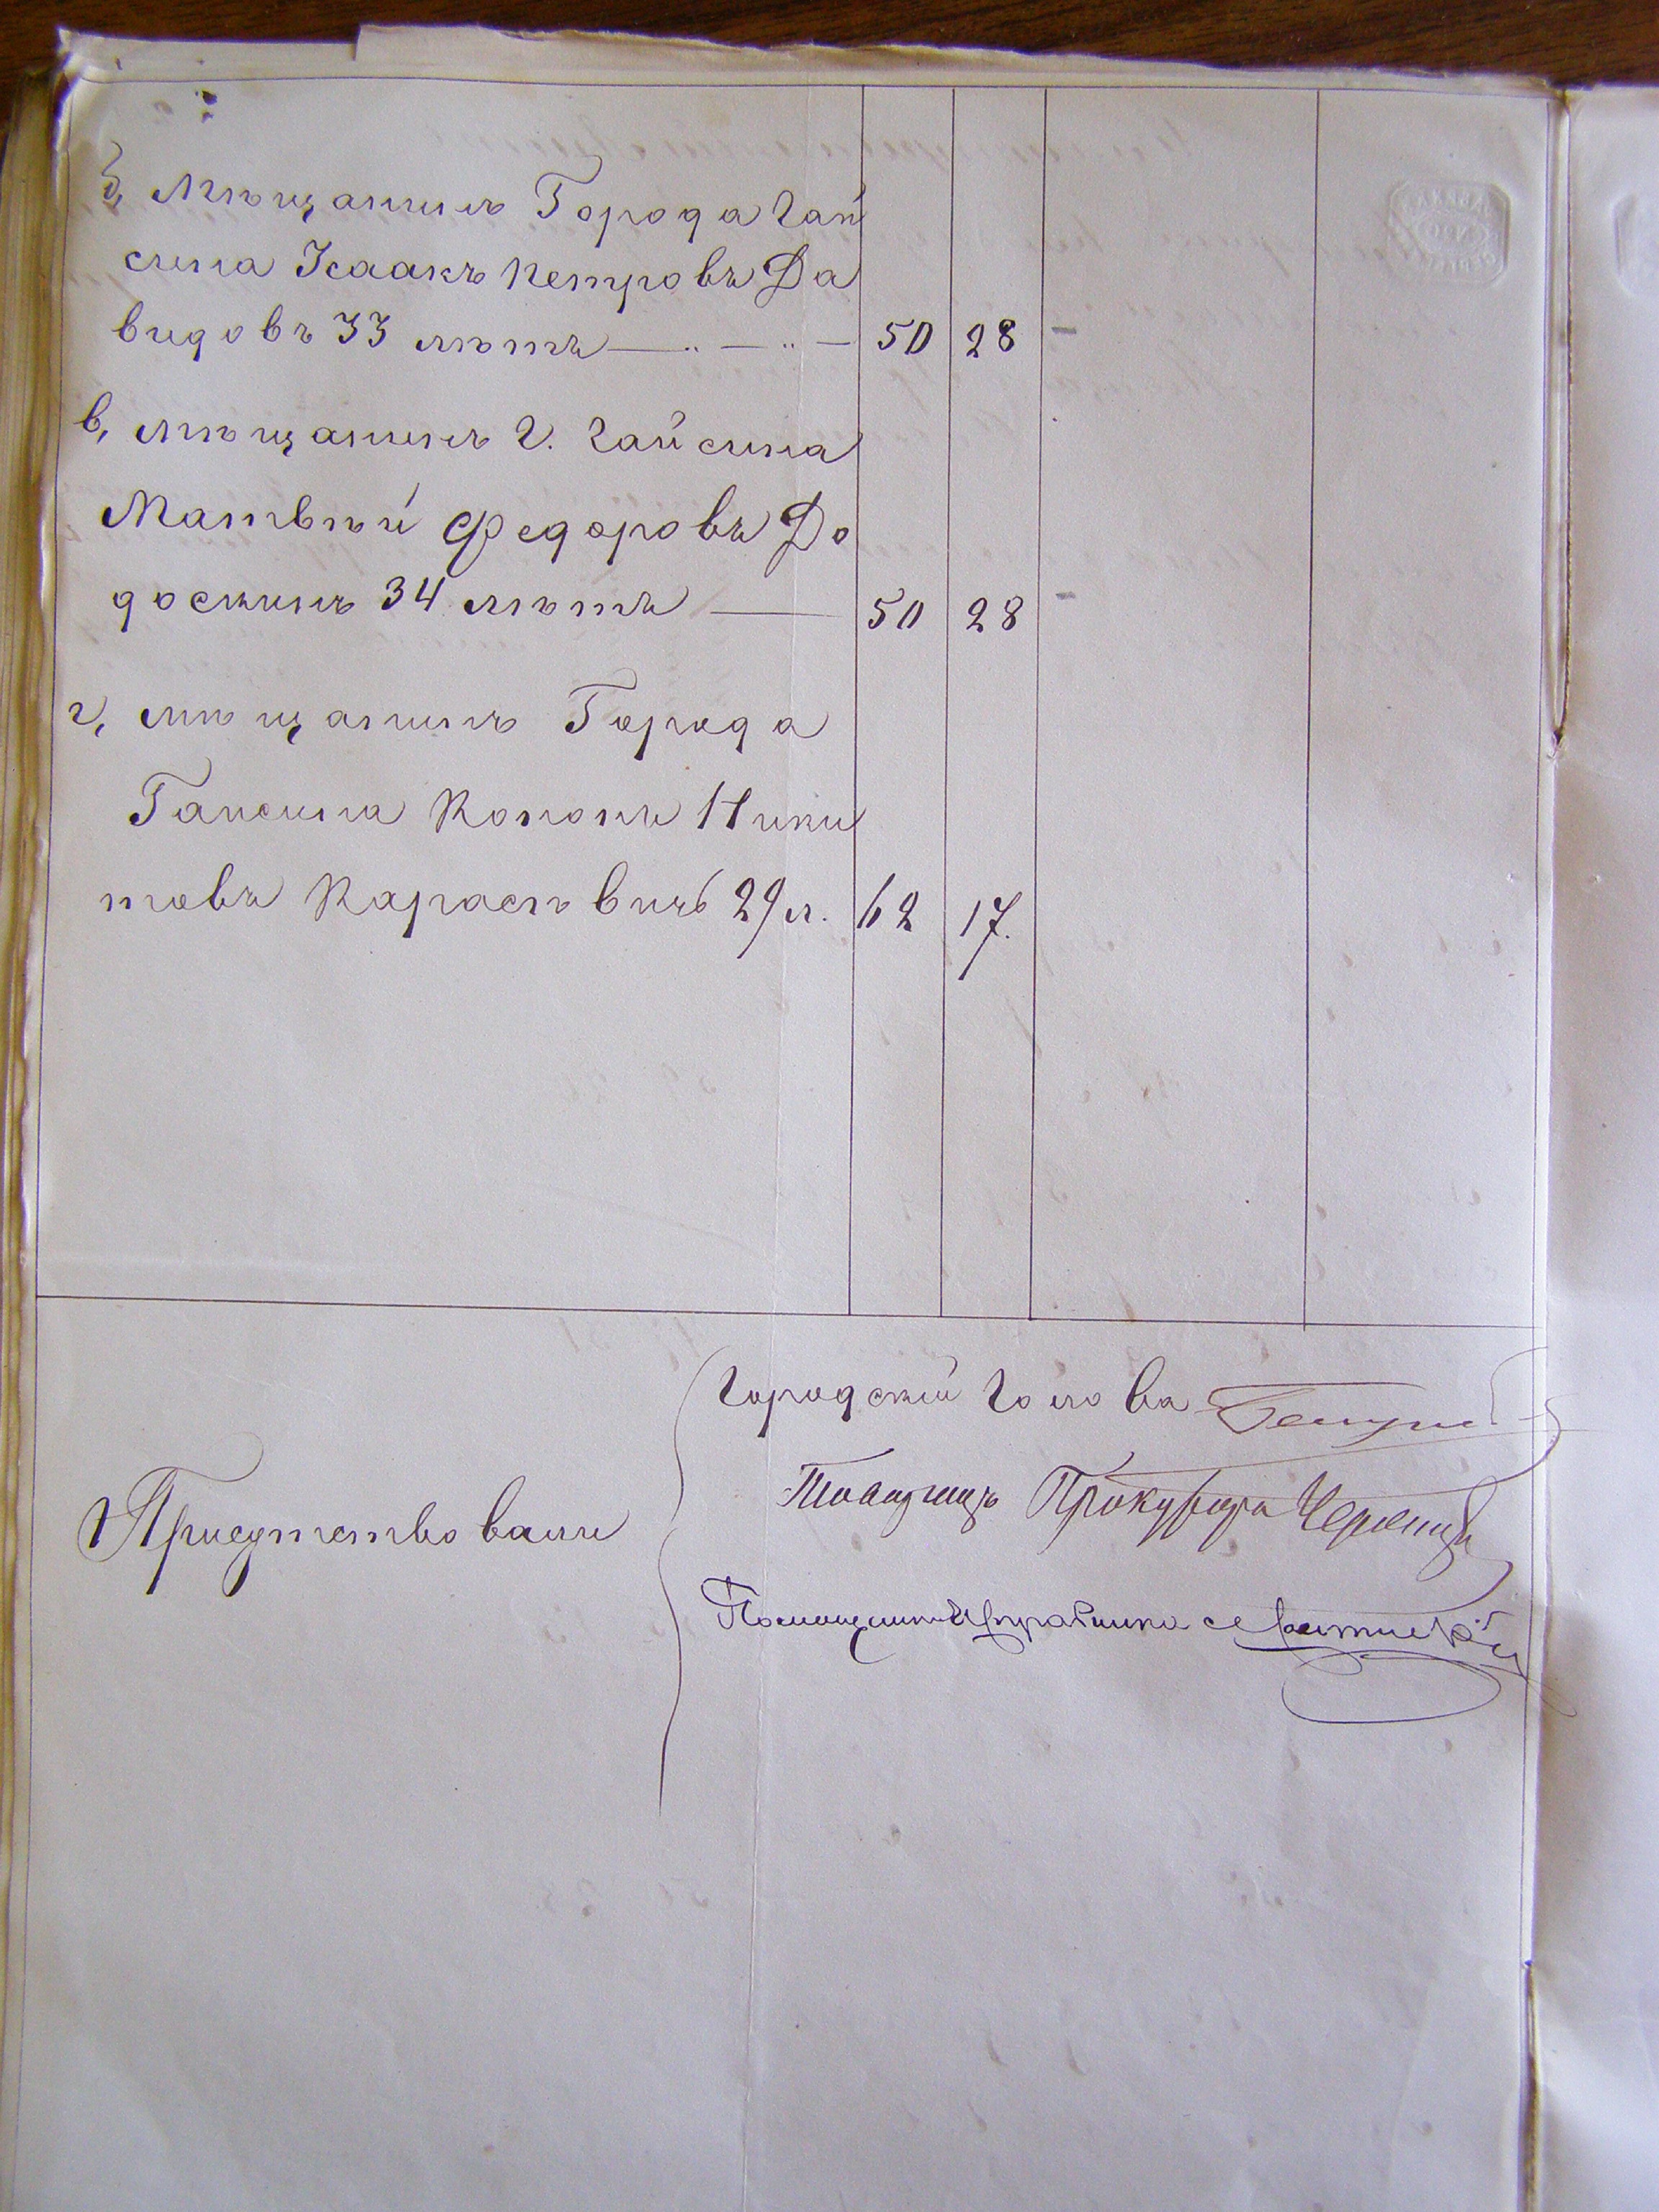 б, Мѣщанинъ Города Гай
сина Исаакъ Петровъ Да
видовъ 33 лѣтъ — „ — „ — 50 28 -
в, мѣщанинъ г. Гайсина
Матвѣй Федоровъ До
доскинъ 34 лѣтъ — 50 28 -
г, мѣщанинъ Города
Гайсина Кононъ Ники
товъ Карасѣвичъ 29 л. 62 17.
Городской Голова
Товарищъ Прокурора
Присутствовали
Помощникъ Исправника